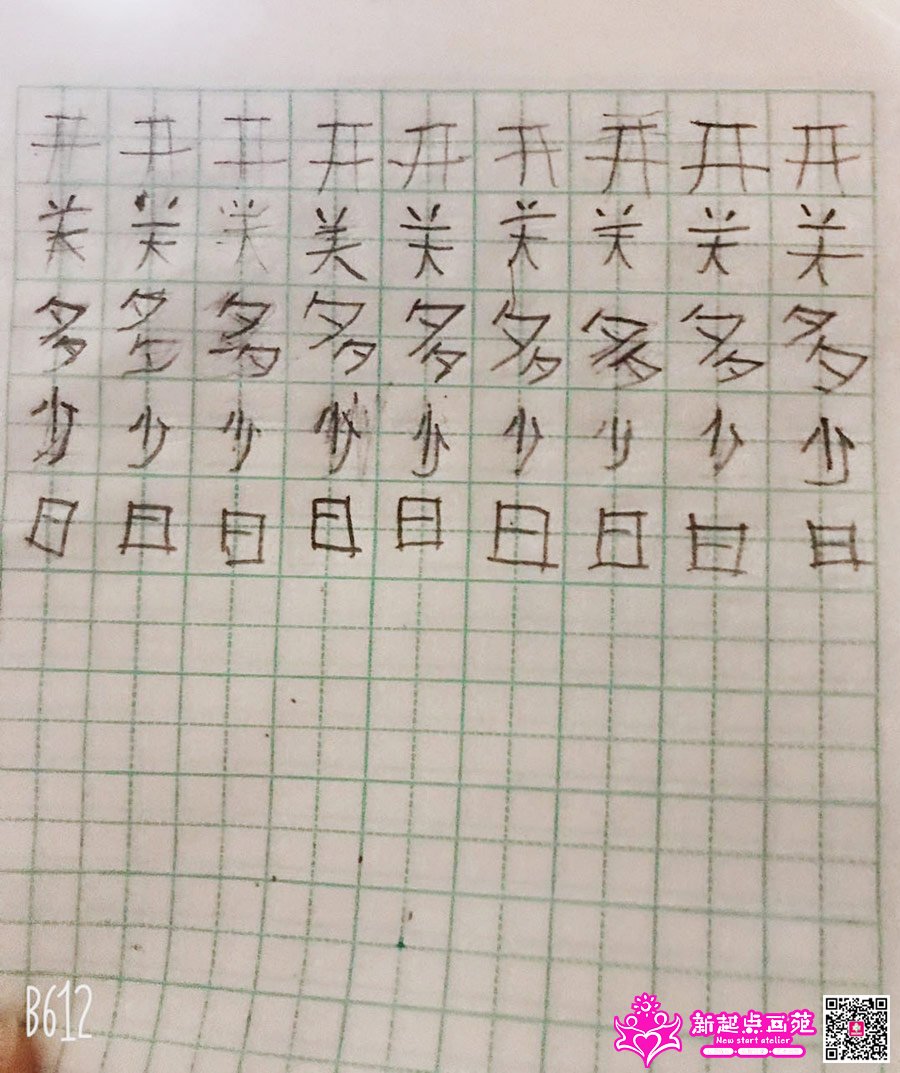 开 开 开 开 开 开 开 开 开
关 关 关 关 关 关 关 关 关
多 多 多 多 多 多 多 多 多
少 少 少 少 少 少 少 少 少
日 日 日 日 日 日 日 日 日
B612
新起点画苑
New start atelier